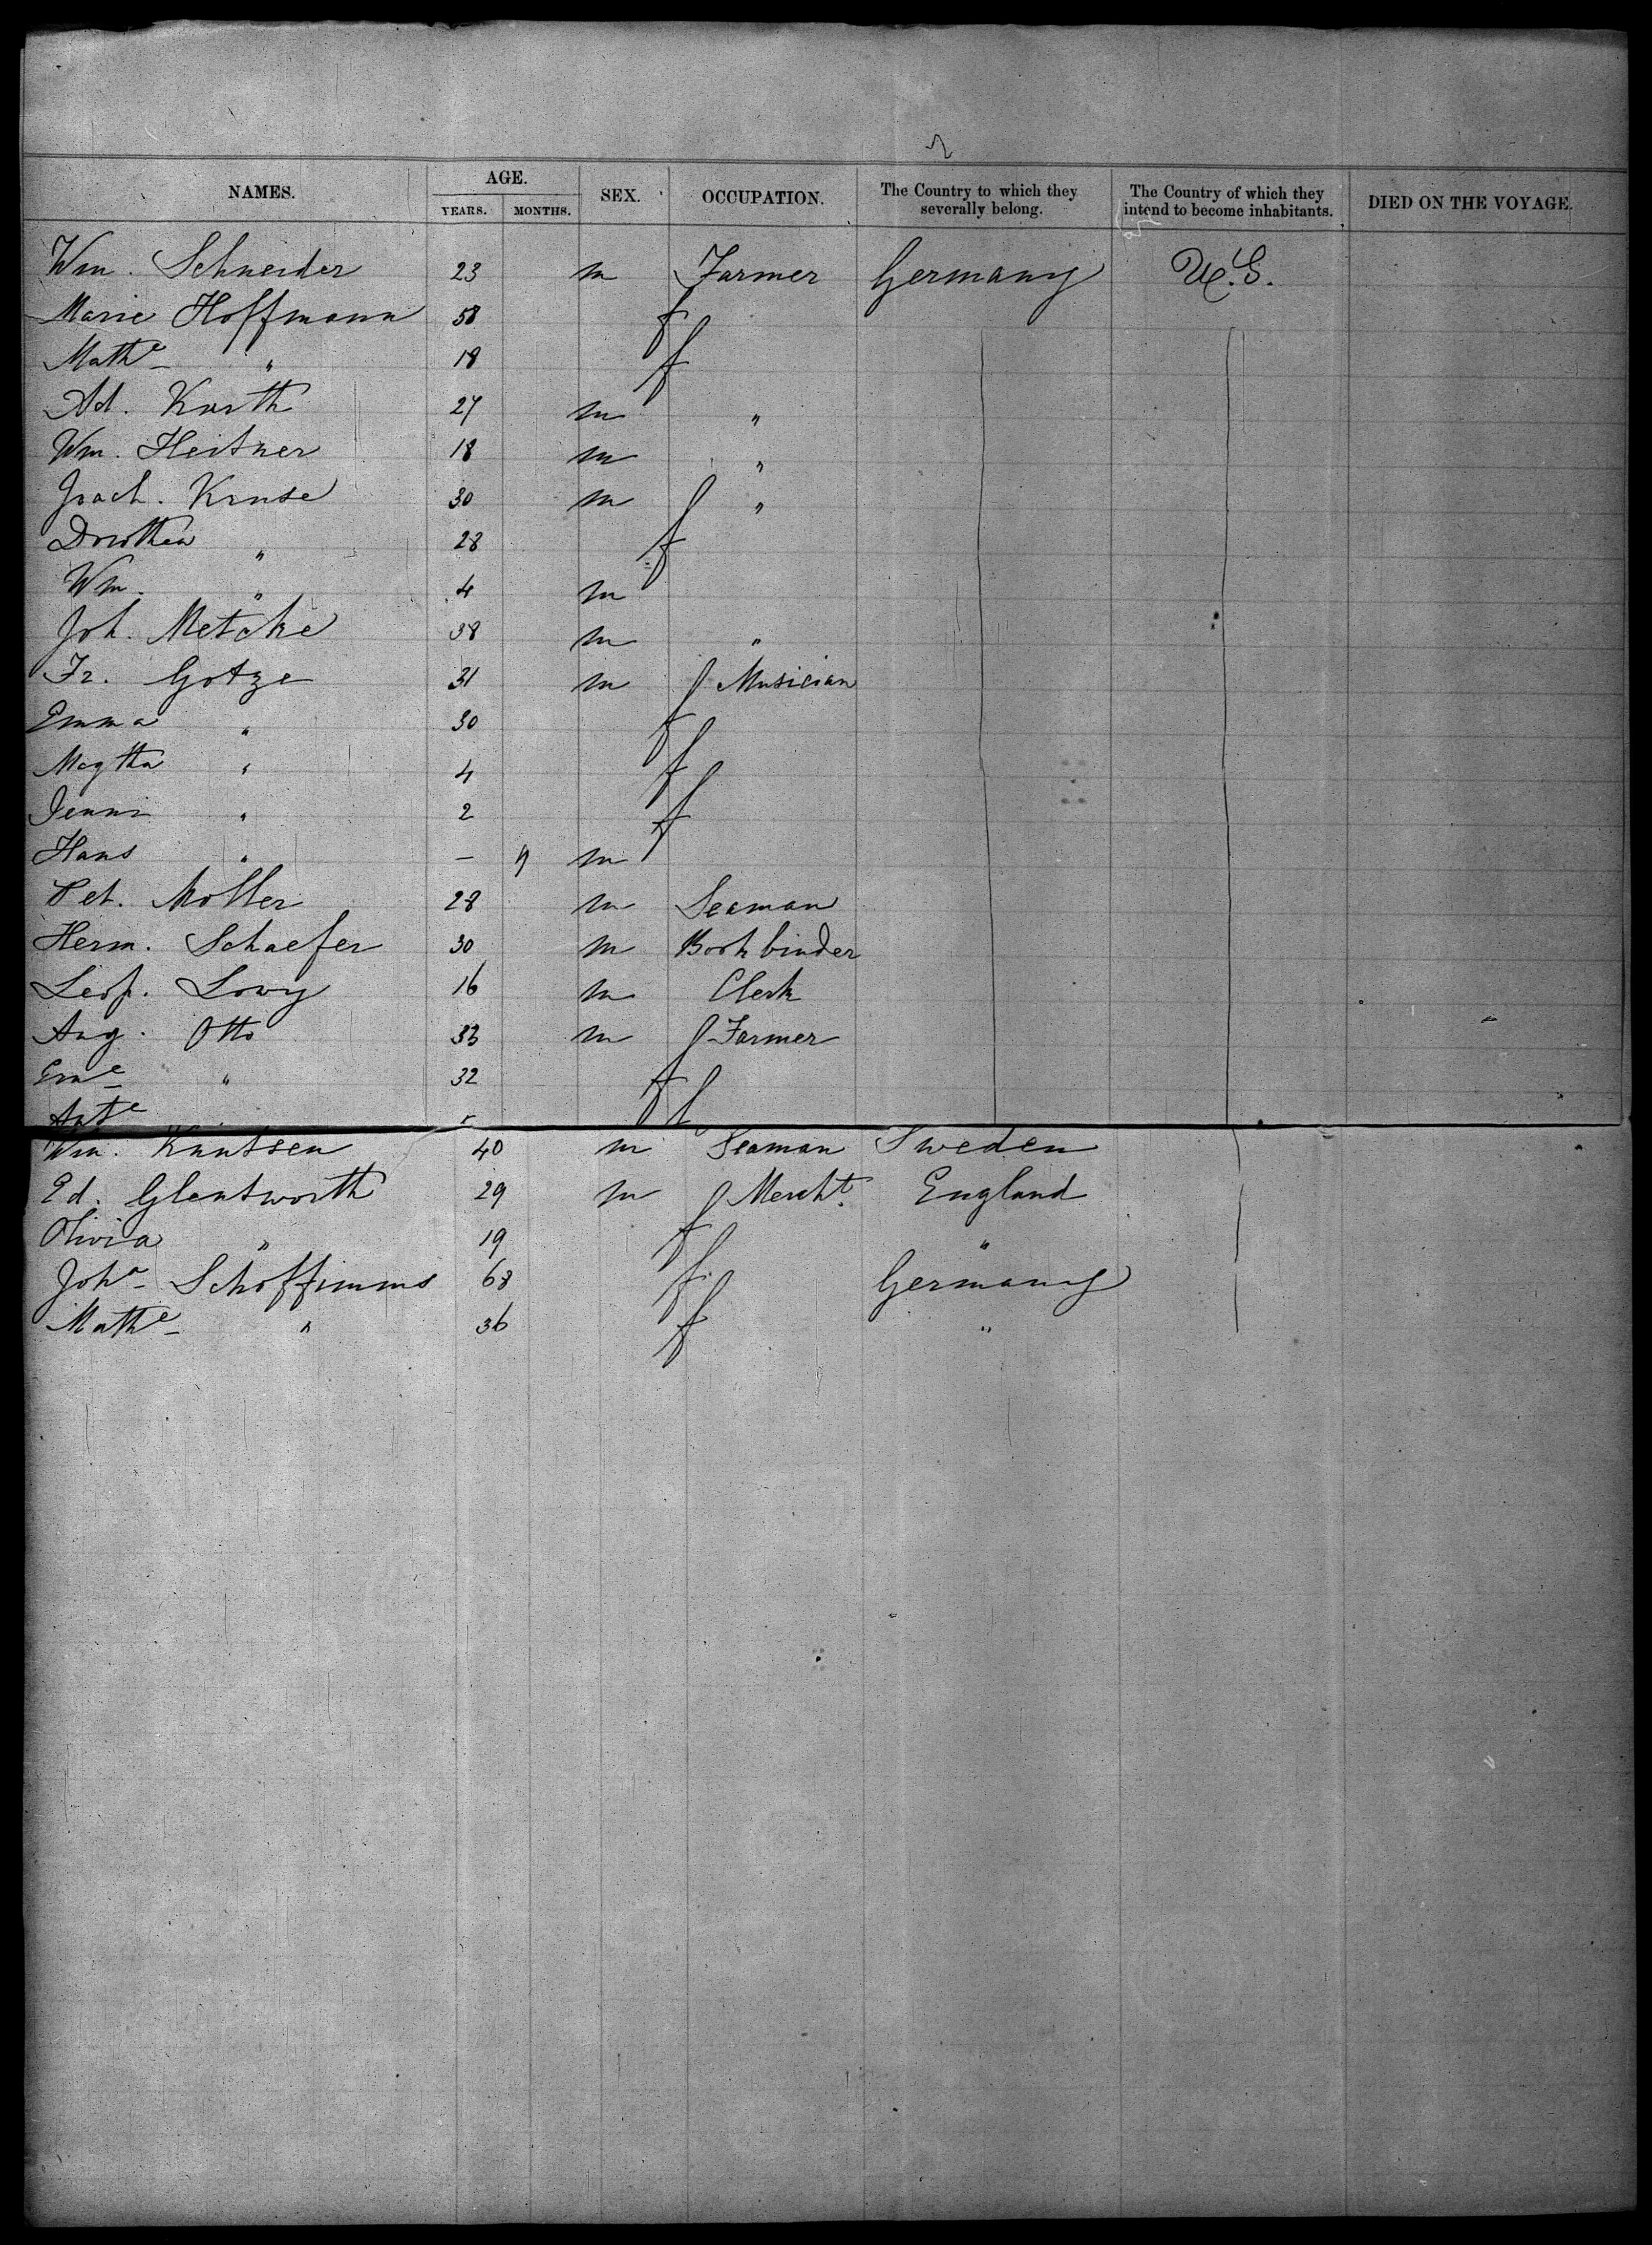 NAMES. AGE. SEX. OCCUPATION. The Country to which they severally belong. The Country of which they intend to become inhabitants. DIED ON THE VOYAGE.
YEARS. MONTHS.
Wm. Schneider 23 m Farmer Germany U.S.
Marie Hoffmann 58 f
Mathe " 18 f
Ad. Kurth 27 m "
Wm. Heitner 18 m "
Joach. Kruse 30 m "
Dorothea " 28 f
Wm. " 4 m
Joh. Metcke 38 m "
Fr. Gotze 31 m Musician
Emma " 30 f
Magtha " 4 f
Jenni " 2 f
Hans " — 9 m
Pet. Moller 28 m Seaman
Herm. Schaefer 30 m Bookbinder
Leop. Lowy 16 m Clerk
Aug. Otto 33 m Farmer
Erne " 32 f
Wm. Knutsen 40 m Seaman Sweden
Ed. Glentworth 29 m Mercht. England
Olivia " 19 f "
Joha Schoffimms 68 f Germany
Mathe " 36 f "